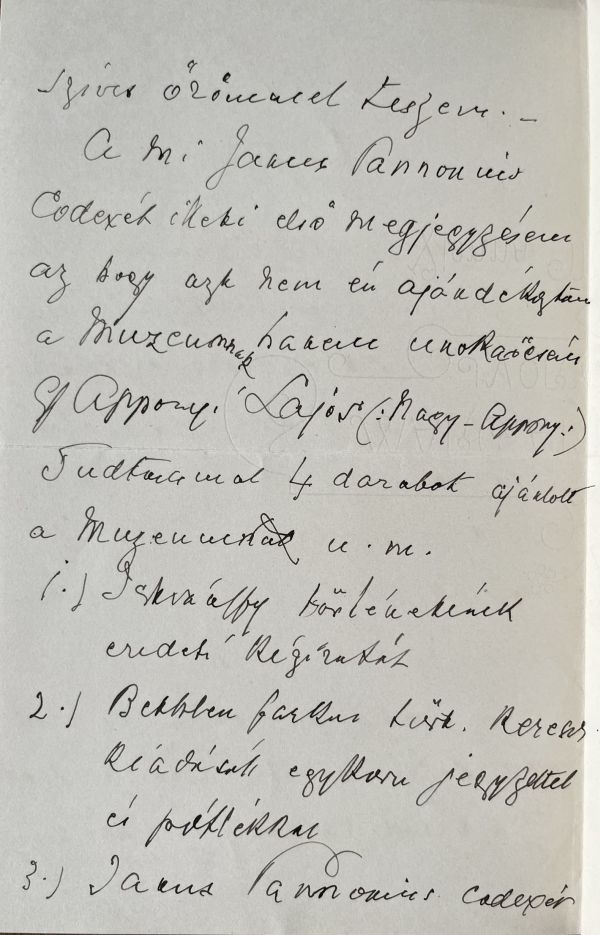 szíves örömmel teszem. –
A mi Janus Pannonius
Codexét illeti első megjegyzésem
az hogy azt nem én ajándékoztam
a Muzeumnak hanem unokaöcsém
Gf Apponyi Lajos (: Nagy-Appony :)
Tudtommal 4 darabot ajánlott
a Muzeum u. m.
1.) Istvánffy történetének
eredeti kéziratát
2.) Bethlen Farkas tört.
kiadását egykoru jegyzettel
és pótlékkal
3.) Janus Pannonius codexét